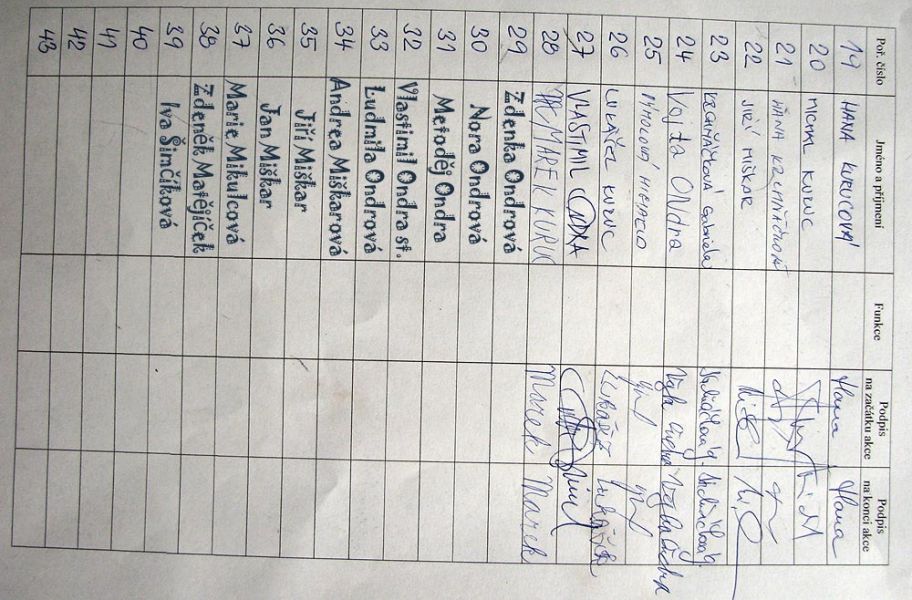 Poř. číslo Jméno a příjmení Funkce Podpis na začátku akce Podpis na konci akce
19 HANA KURUCOVÁ Hana Hana
20 MICHAL KURUC
21 HANA
22 JIŘÍ MIŠKAR
23 Gabriela
24 Vojta ONdra
25
26 LUKÁŠEK KURUC Lukášek Lukášek
27 VLASTIMIL ONDRA
28 MAREK KURUC Marek Marek
29 Zdenka Ondrová
30 Nora Ondrová
31 Metoděj Ondra
32 Vlastimil Ondra st.
33 Ludmila Ondrová
34 Andrea Miškarová
35 Jiří Miškar
36 Jan Miškar
37 Marie Mikulcová
38 Zdeněk Matějíček
39 Iva Šimčíková
40
41
42
43